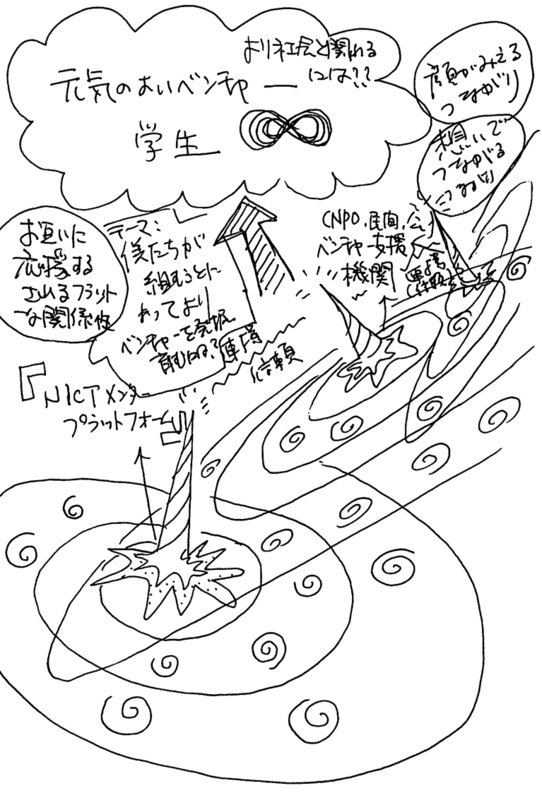 より社会と関わる
には??
元気のよいベンチャー
学生
顔がみえる
つながり
想いで
つながる
つながり
お互いに
応援する
されるフラット
な関係性
テーマ:
僕たちが
組むことに
よってより
ベンチャーを発掘
育むには?
連携
信頼
(NPO,民間,公)
ベンチャー支援
機関
『NICTメンター
プラットフォーム』